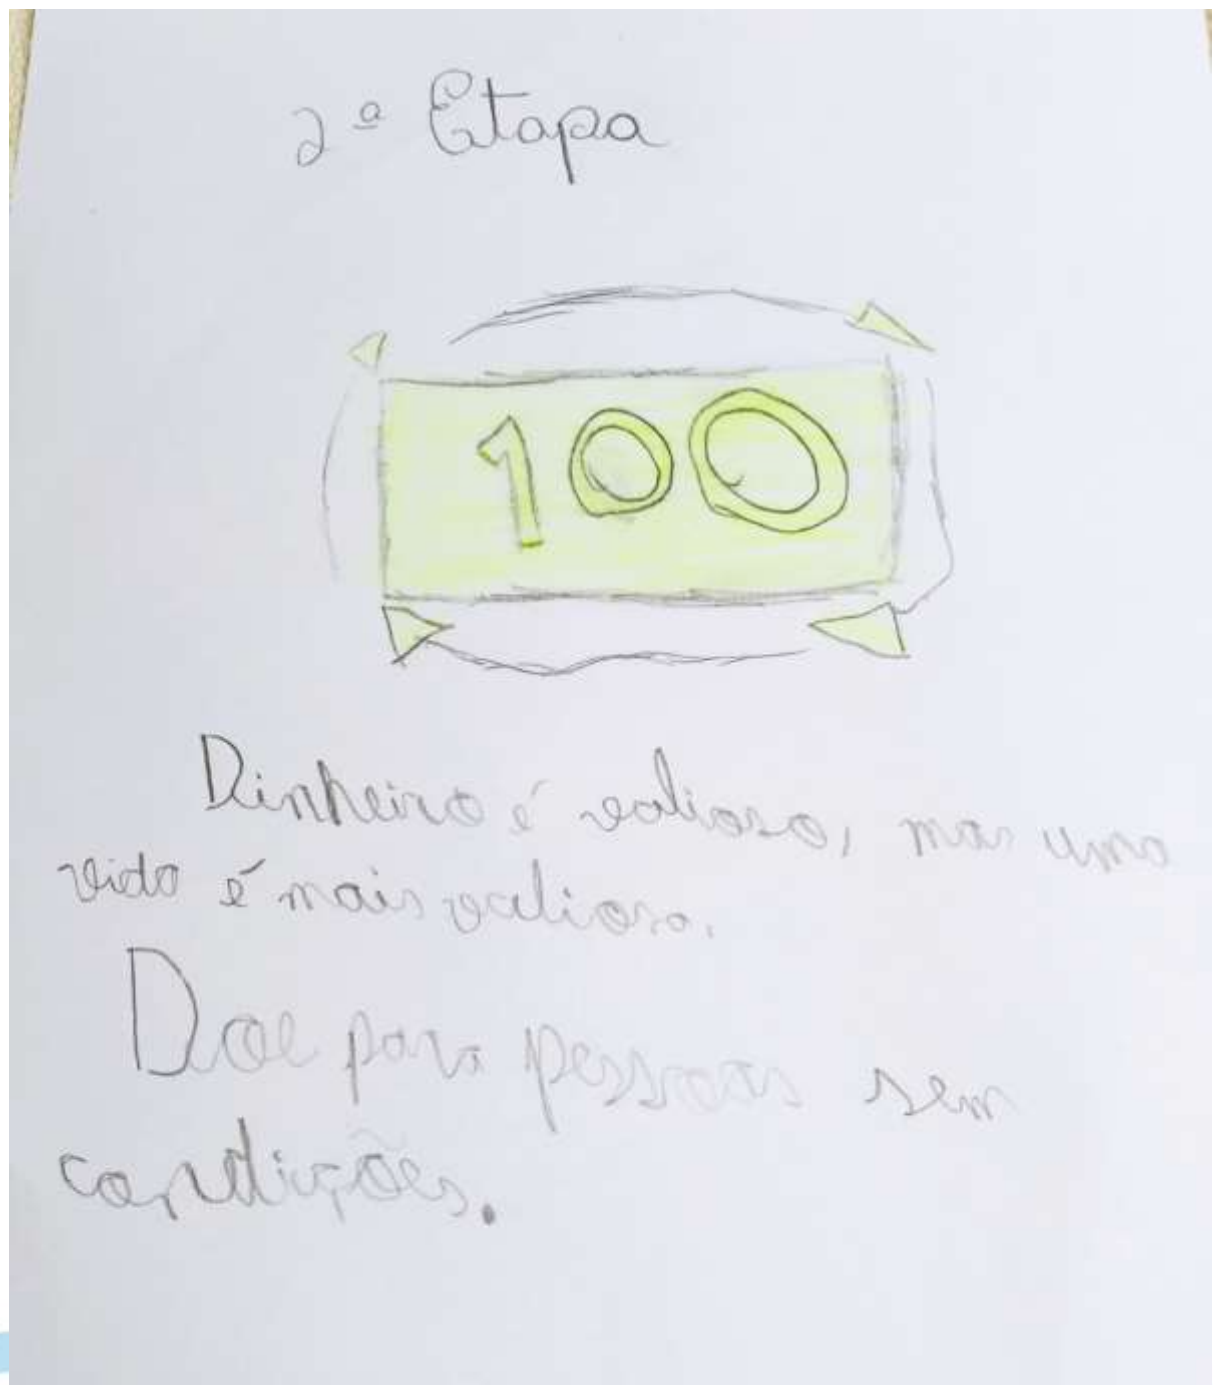 2ª Etapa
100
Dinheiro é valioso, mas uma
vida é mais valiosa.
Doe para pessoas sem
condições.